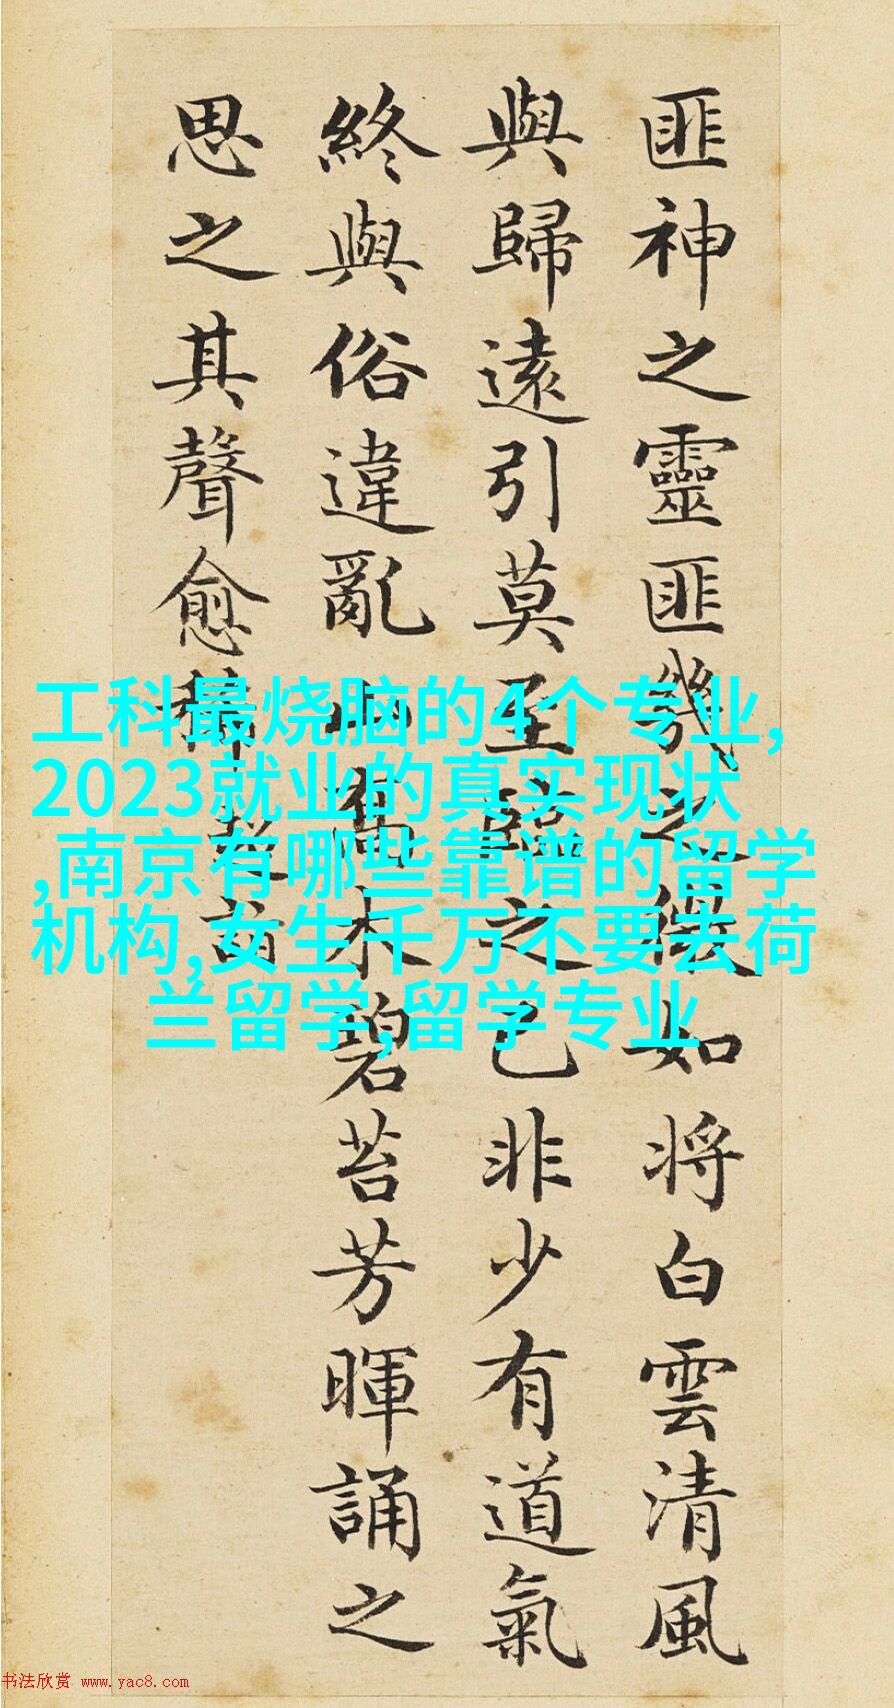 匪神之靈匪幾之微如將白雲清風
與歸遠引莫至臨之已非少有道氣
終與俗違亂山喬木碧苔芳暉誦之
思之其聲愈稀
工科最烧脑的4个专业,
2023就业的真实现状
,南京有哪些靠谱的留学
机构,女生千万不要去荷
兰留学,留学专业
书法欣赏 www.yac8.com